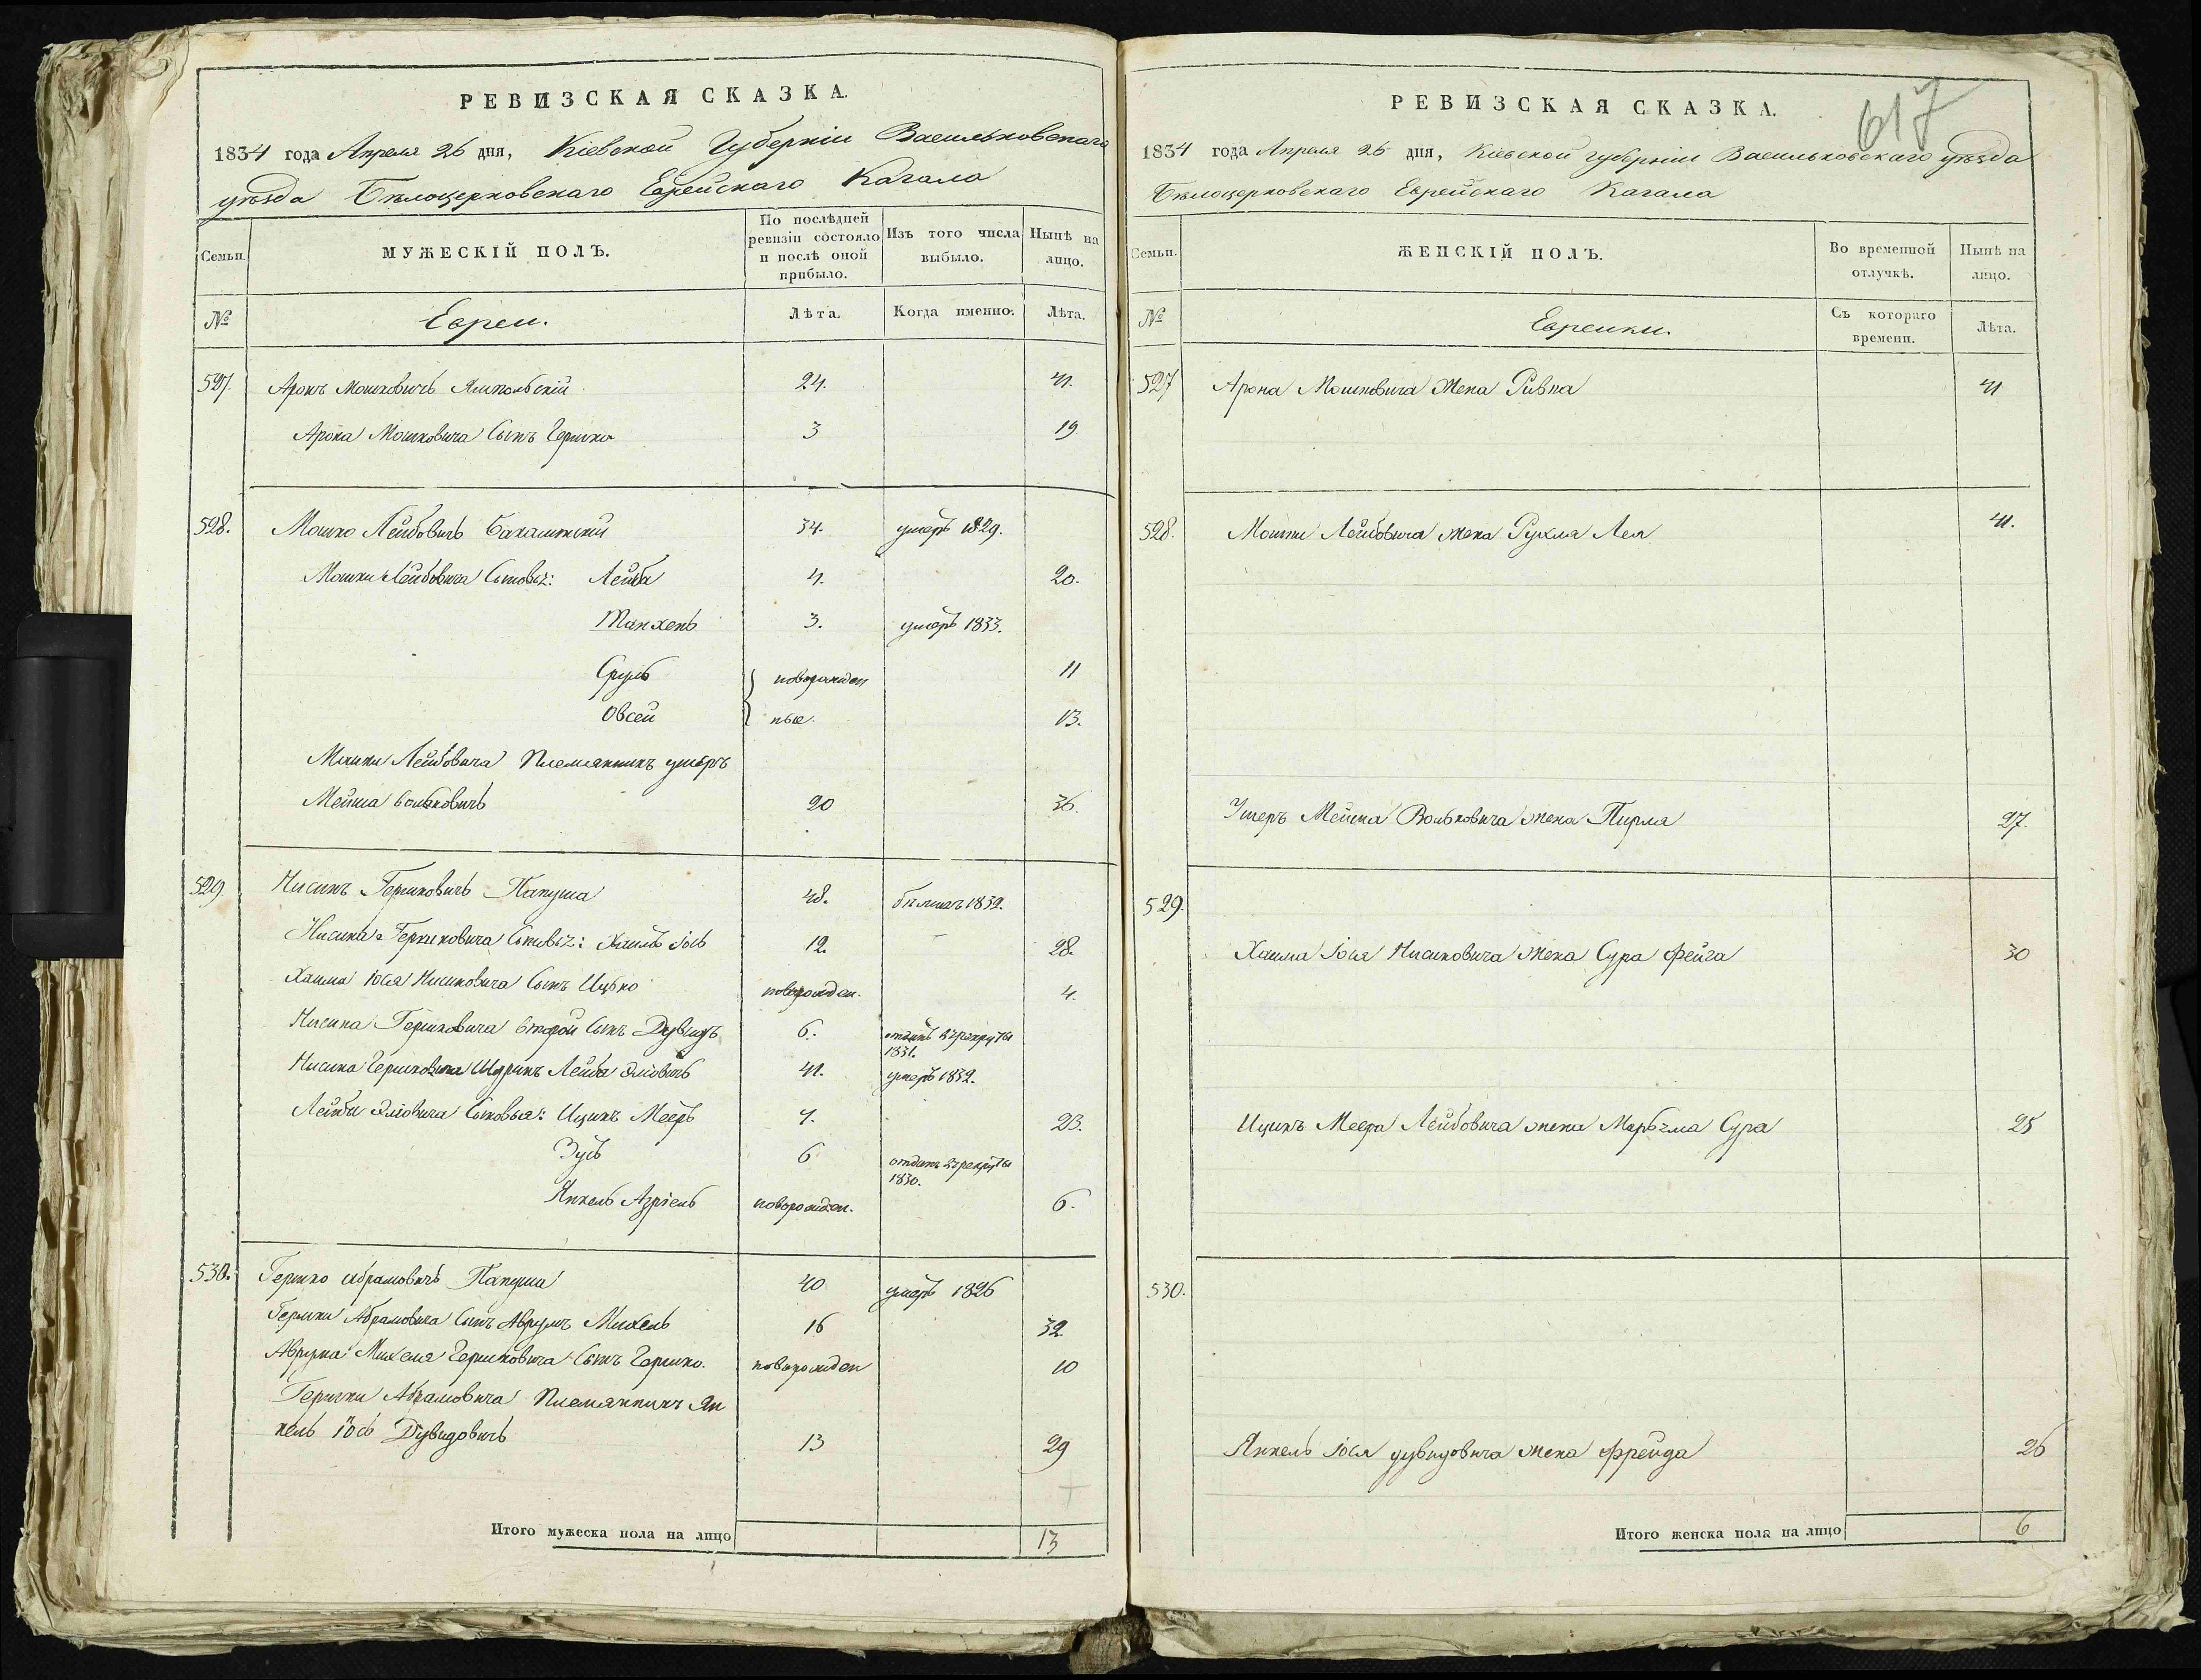 РЕВИЗСКАЯ СКАЗКА.
1834 года Апреля 26 дня, Кіевской Губерніи Васильковскаго
уѣзда Бѣлоцерковскаго Еврейскаго Кагала
Семьи.
МУЖЕСКІЙ ПОЛЪ.
По послѣдней ревизіи состояло и послѣ оной прибыло.
Изъ того числа выбыло.
Нынѣ на лицо.
№
Евреи.
Лѣта.
Когда именно.
Лѣта.
527. Аронъ Мошковичъ Ямпольскій 24. 41.
Арона Мошковича Сынъ Гершко 3 19
528. Мошко Лейбовичъ 34. умеръ 1829.
Мошки Лейбовича Сыновья: Лейба 4. 20.
Манхень 3. умеръ 1833.
Сруль новорожден 11
Овсей ные. 13.
Мошки Лейбовича Племянникъ умеръ
Мейша Вольковичъ 20 36.
529 Нисинъ Гершковичъ Папуша 48. 1832.
Нисина Гершковича Сыновья: Хаимъ Іось 12. 28.
Хаима Іося Нисиновича Сынъ Ицько новорожден. 4.
Нисина Гершковича второй Сынъ Дувидъ 6. отданъ въ рекруты
1831.
Нисина Гершковича Шуринъ Лейба Эліовичъ 41. умеръ 1832.
Лейби Эліовича Сыновья: Ицикъ Мееръ 7. 23.
Зусь 6 отданъ въ рекруты
1830.
Янкель Азріель новорожден. 6.
530. Гершко Абрамовичъ Папуша 40 умеръ 1826
Гершки Абрамовича Сынъ Аврумъ Михель 16 32
Аврума Михеля Гершковича Сынъ Гершко. новорожден 10
Гершки Абрамовича Племянникъ Ян
кель Іось Дувидовичъ 13 29
Итого мужеска пола на лицо 13
617
РЕВИЗСКАЯ СКАЗКА.
1834 года Апреля 26 дня, Кіевской губерніи Васильковскаго уѣзда
Бѣлоцерковскаго Еврейскаго Кагала
Семьи.
ЖЕНСКІЙ ПОЛЪ.
Во временной отлучкѣ.
Нынѣ на лицо.
№
Еврейки.
Съ котораго времени.
Лѣта.
527 Арона Мошковича Жена Ривка 41
528. Мошки Лейбовича жена Рухля Лея 41.
Умеръ Мейша Вольковича жена Пирля 27.
529.
Хаима Іося Нисиновича жена Сура Фейга 30
Ицикъ Меера Лейбовича жена Сура 25
530.
Янкель Іося Дувидовича жена Фрейда 26
Итого женска пола на лицо 6